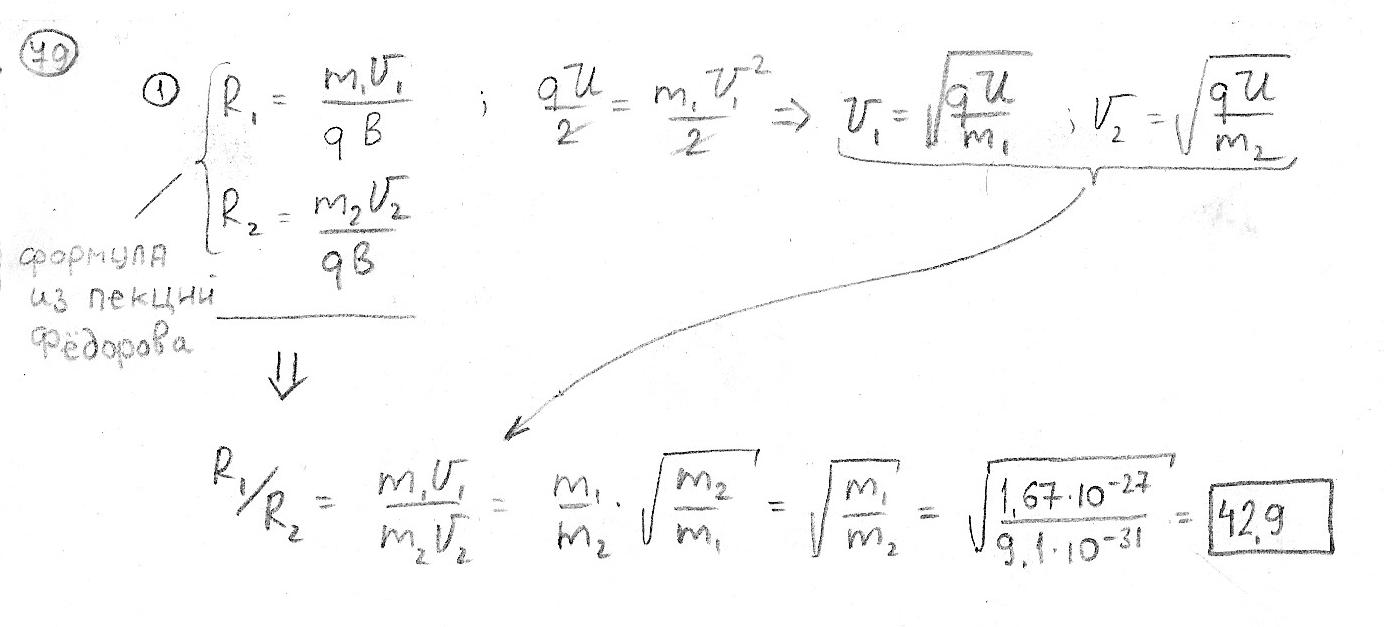 79
① { R₁ = m₁v₁ / qB ; qU/2 = m₁v₁²/2 ⇒ v₁ = √(qU/m₁) ; v₂ = √(qU/m₂)
R₂ = m₂v₂ / qB
формула
из лекций
Фёдорова
⇓
R₁/R₂ = m₁v₁ / m₂v₂ = m₁/m₂ · √(m₂/m₁) = √(m₁/m₂) = √(1,67·10⁻²⁷ / 9,1·10⁻³¹) = 42,9